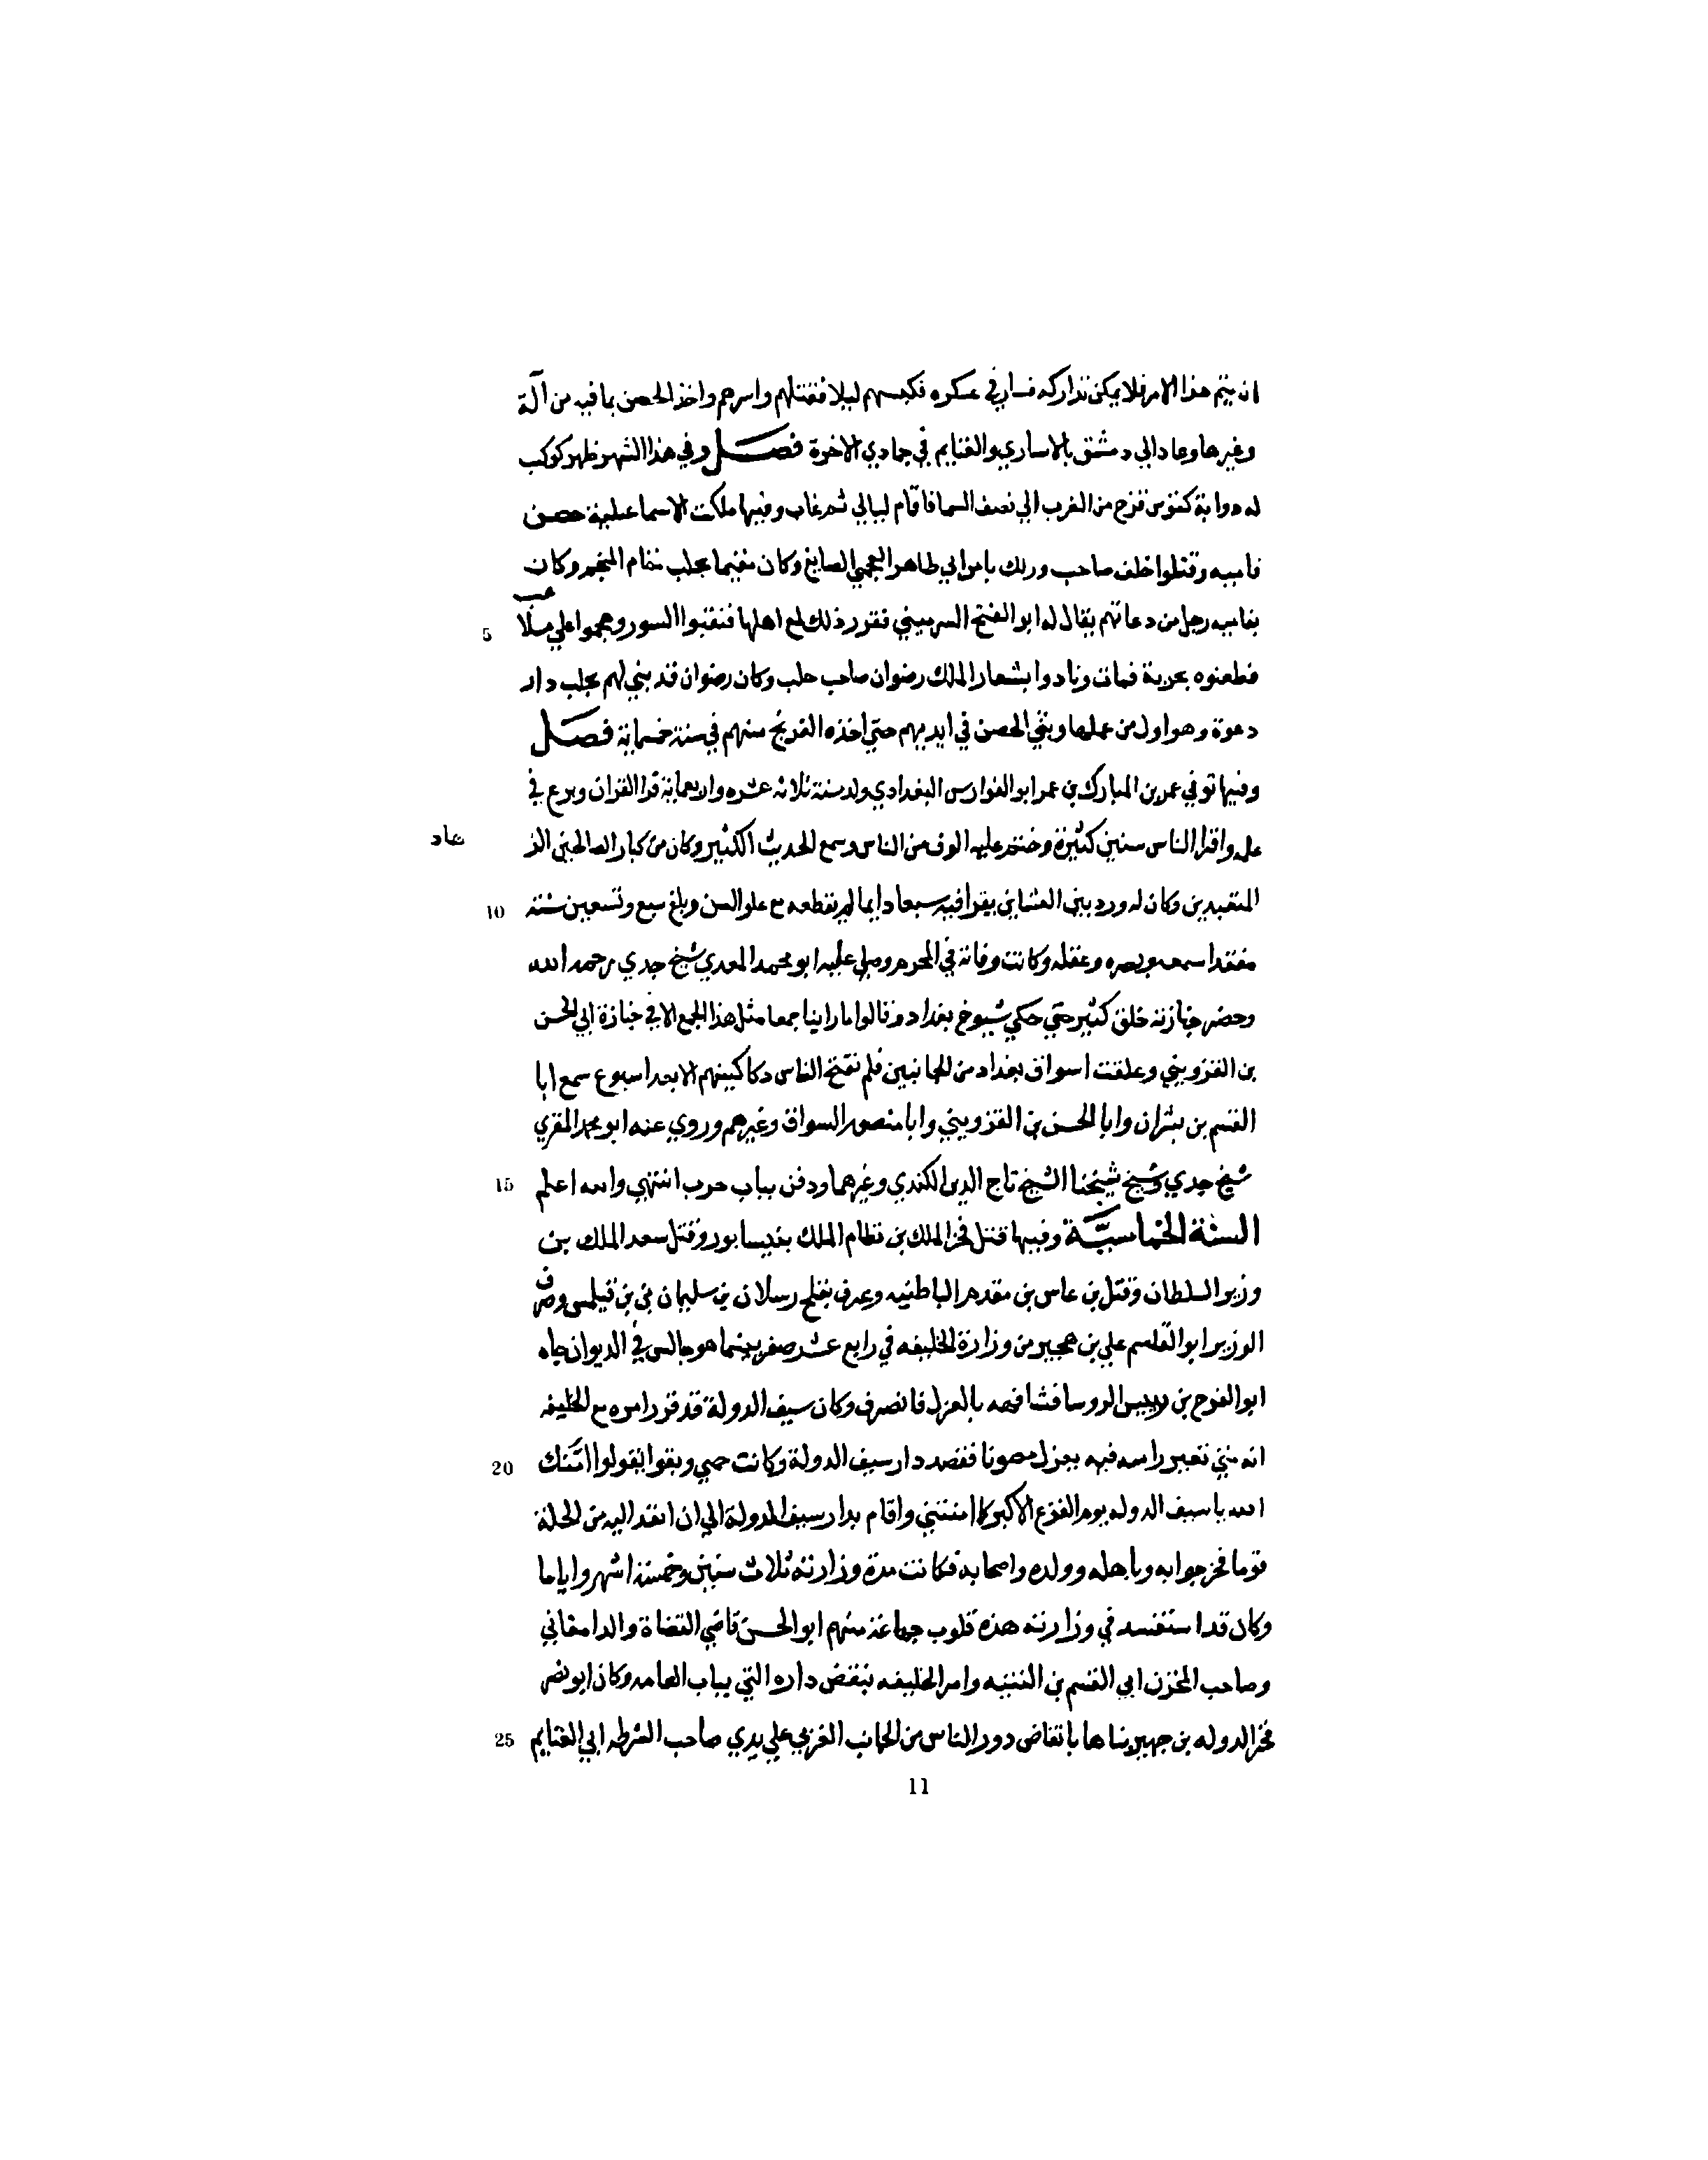 ان يتم هذا الامر فلا يمكن تداركه فسار في عسكره فكبسهم ليلا فقتلهم واسرهم واخذ الحصن بما فيه من آلة
وغيرها وعاد الي دمشق بالاساري والغنايم في جمادي الاخرة فصــل وفي هذا الشهر ظهر كوكب
له دوابة كقوس قزح من الغرب الي نصف السما فاقام ليالي ثم غاب وفيها ملكت الاسماعيلية حصن
فاميه وقتلوا خلف صاحب وذلك بامر ابي طاهر العجمي الصايغ وكان مقيما بحلب مقام المنجم وكان
بفاميه رجل من دعاتهم يقال له ابو الفتح السرميني فقرر ذلك مع اهلها فنقبوا السور وهجموا علي
5
فطعنوه بحربة فمات ونادوا بشعار الملك رضوان صاحب حلب وكان رضوان قد بني لهم بحلب دار
دعوة وهو اول من عملها وبقي الحصن في ايديهم حتي اخذه الفرنج منهم في سنة خمسماية فصــل
وفيها توفي عمر بن المبارك بن عمر ابو الفوارس البغدادي ولد سنة ثلاثه عشره واربعماية قرا القران وبرع في
علمه واقرا الناس سنين كثيرة وختم عليه الوف من الناس وسمع الحديث الكثير وكان من كبار الصالحين الز
عاد
المتعبدين وكان له ورد بين العشاين يقرا فيه سبعا دايما لم يقطعه مع علو السن وبلغ سبع وتسعين سنه
10
مفتقدا سمعه وبصره وعقله وكانت وفاته في المحرم وصلي عليه ابو محمد المعدي شيخ جدي رحمه الله
وحضر جنازته خلق كثير حتي حكي شيوخ بغداد وقالوا ما راينا جمعا مثل هذا الجمع الا في جنازة ابي الحسن
بن القزويني وغلقت اسواق بغداد من الجانبين فلم تفتح الناس دكاكينهم الا بعد اسبوع سمع ابا
القسم بن بشران وابا الحسن بن القزويني وابا منصور السواق وغيرهم وروي عنه ابو محمد المقري
شيخ جدي وشيخ شيخنا الشيخ تاج الدين الكندي وغيرهما ودفن بباب حرب انتهي والله اعلم
15
السنة الخماسيَّة وفيها قتل فخر الملك بن نظام الملك بنيسابور وقتل سعد الملك بن
وزير السلطان وقتل بن عاس بن مقدم الباطنيه وعرف بقلج رسلان بن سليمان بن بن قتلمس وصرف
الوزير ابو القاسم علي بن جهير من وزارة الخليفه في رابع عشر صفر بينما هو جالس في الديوان جاه
ابو الفرج بن رييس الروسا فشافهه بالعزل فانصرف وكان سيف الدولة قد قرر امره مع الخليفه
انه متي تغير رايه فيه يعزل مصونا فقصد دار سيف الدولة وكانت حمي وبقوا يقولوا امَّنك
20
الله يا سيف الدوله يوم الفزع الاكبر كما امنتني واقام بدار سيف الدولة الي ان انفد اليه من الحلة
قوما فخرجوا به وباهله وولده واصحابه فكانت مدة وزارته ثلاث سنين وخمسة اشهر واياما
وكان قد استفسد في وزارته هذه قلوب جماعة منهم ابو الحسن قاضي القضاة والدامغاني
وصاحب المخزن ابي القسم بن الفقيه وامر الخليفه بنقض داره التي بباب العامه وكان ابو نصر
فخر الدوله بن جهير بناها بانقاض دور الناس من الجانب الغربي علي يدي صاحب الشرطه ابي الغنايم
25
11